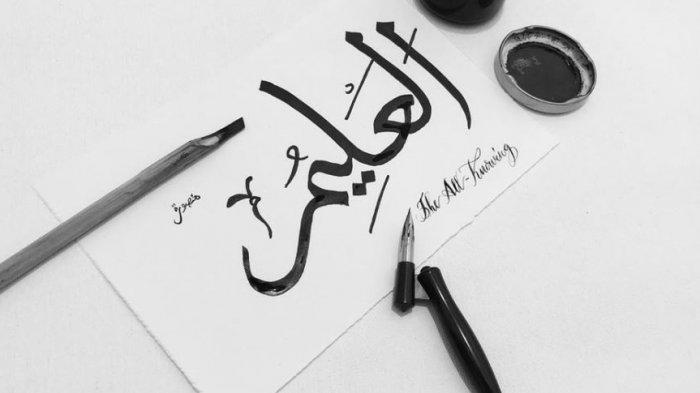 العَلِيمُ
The All-Knowing